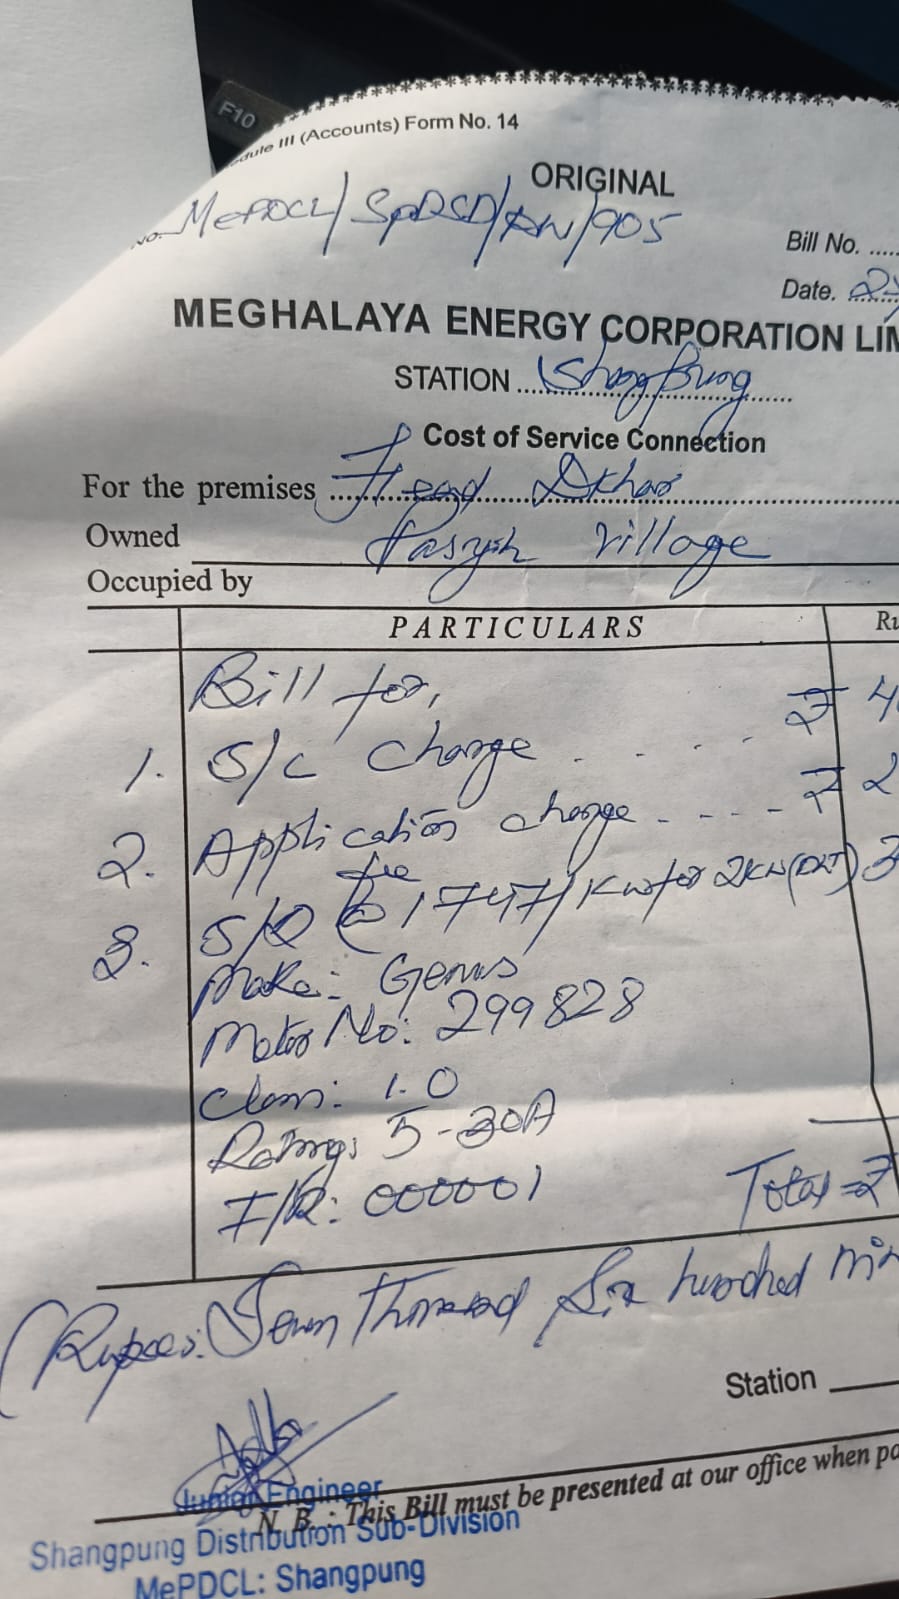 F10
dule III (Accounts) Form No. 14
ORIGINAL
No. MePDCL/SpDSD/ /905
Bill No. .....
Date. 2
MEGHALAYA ENERGY CORPORATION LIM
STATION Shangpung
Cost of Service Connection
For the premises Dkhar
Owned Pasyih Village
Occupied by
PARTICULARS Ru
Bill for,
1. S/C Charge . . . . ₹ 4
2. Application charge . - - - - ₹ 2
fee
3. S/D @ 1747/KW for 2KW (DLT) 3
Make: Genus
Meter No: 299828
Class: 1.0
Rating: 5-30A
I/R: 000001
Total = ₹
(Rupees: Seven thousand Six hundred nin
Station
Junior Engineer
N. B. : This Bill must be presented at our office when pa
Shangpung Distribution Sub-Division
MePDCL: Shangpung